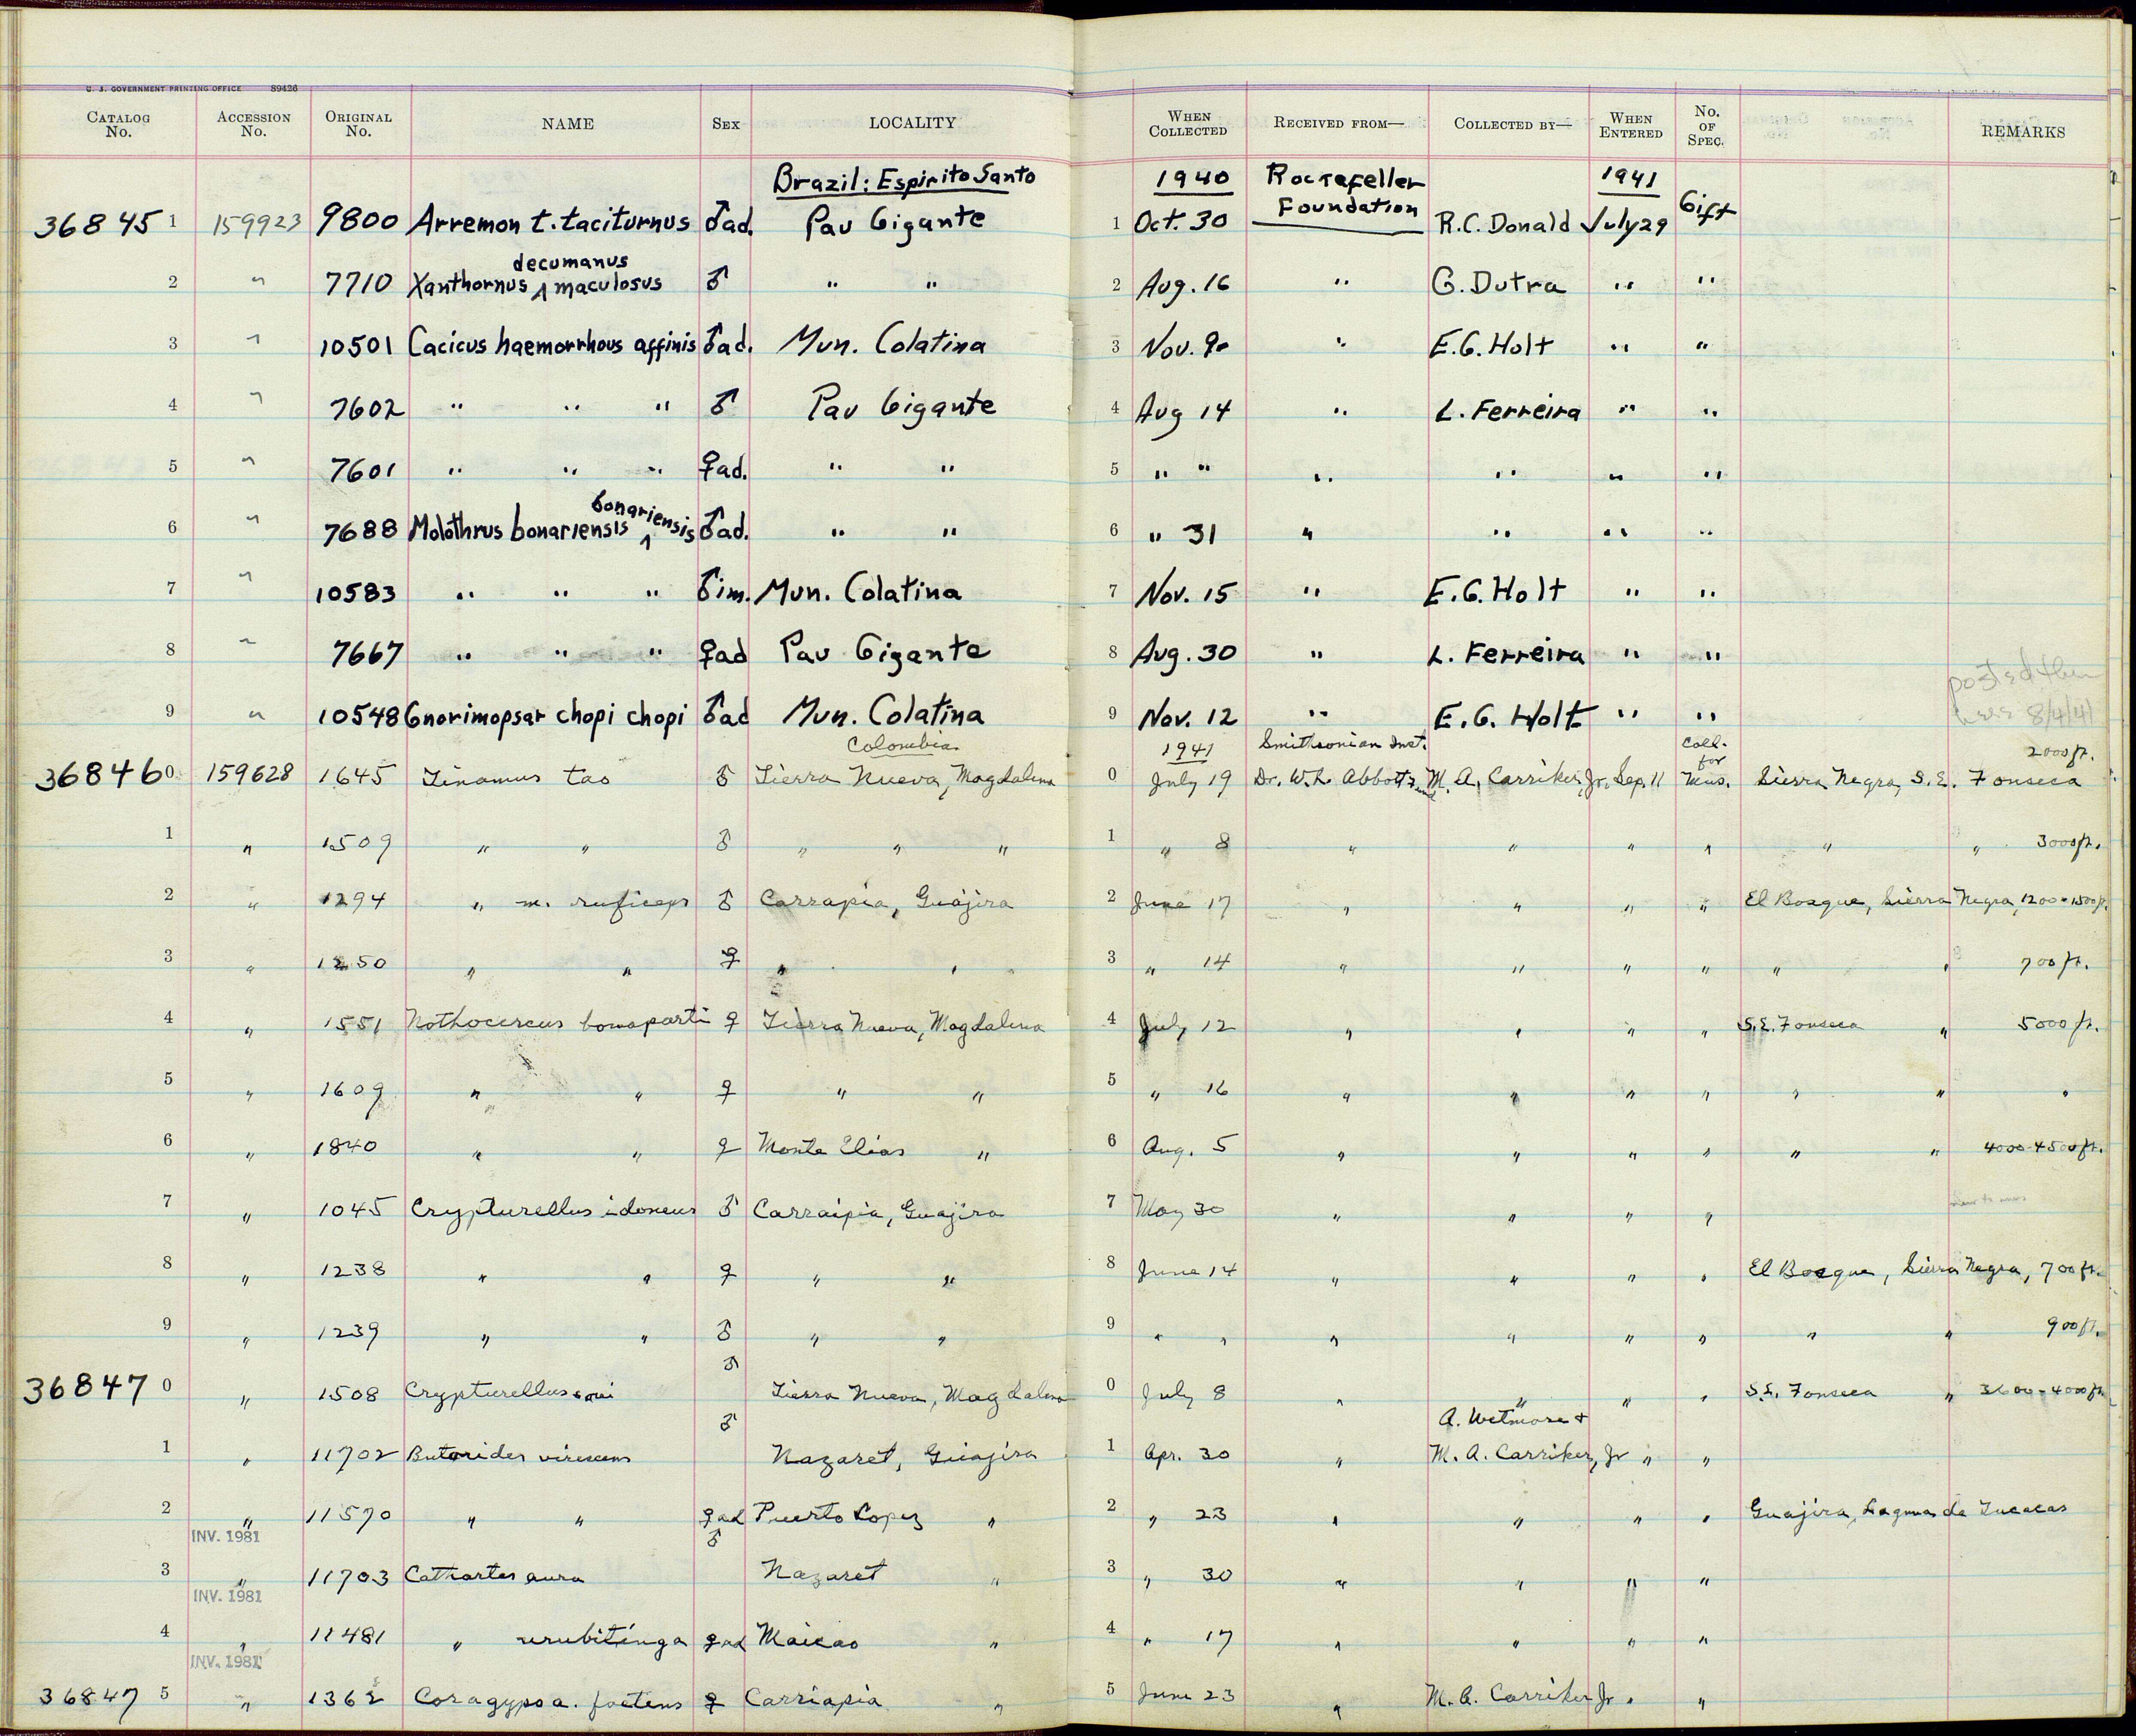 U. S. GOVERNMENT PRINTING OFFICE 89426
CATALOG No. ACCESSION No. ORIGINAL No. NAME SEX LOCALITY WHEN COLLECTED RECEIVED FROM— COLLECTED BY— WHEN ENTERED No. OF SPEC. REMARKS
Brazil: Espirito Santo 1940 Rockefeller Foundation 1941
36845 1 159923 9800 Arremon t. taciturnus ♂ad. Pau Gigante 1 Oct. 30 R.C. Donald July 29 Gift
decumanus
2 " 7710 Xanthornus ^ maculosus ♂ " " 2 Aug. 16 " G. Dutra " "
3 " 10501 Cacicus haemorrhous affinis ♂ad. Mun. Colatina 3 Nov. 9 " E.G. Holt " "
4 " 7602 " " " ♂ Pau Gigante 4 Aug 14 " L. Ferreira " "
5 " 7601 " " " ♀ad. " " 5 " " " " " "
bonariensis
6 " 7688 Molothrus bonariensis ^ ♂ad. " " 6 " 31 " " " "
7 " 10583 " " " ♂im. Mun. Colatina 7 Nov. 15 " E.G. Holt " "
8 " 7667 " " " ♀ad Pau Gigante 8 Aug. 30 " L. Ferreira " "
posted thru
9 " 10548 Gnorimopsar chopi chopi ♂ad Mun. Colatina 9 Nov. 12 " E.G. Holt " " here 8/4/41
Colombia 1941 Smithsonian Inst. Coll. for 2000 ft.
36846 0 159628 1645 Tinamus tao ♂ Tierra Nueva, Magdalena 0 July 19 Dr. W.L. Abbott Fund M. A. Carriker, Jr. Sep. 11 Mus. Sierra Negra, S.E. Fonseca
1 " 1509 " " ♂ " " " 1 " 8 " " " " " " 3000 ft.
2 " 1294 " m. ruficeps ♂ Carrapia, Guajira 2 June 17 " " " " El Bosque, Sierra Negra, 1200-1500 ft.
3 " 1250 " " ♀ " " 3 " 14 " " " " " " 700 ft.
4 " 1551 Nothocercus bonaparti ♀ Tierra Nueva, Magdalena 4 July 12 " " " " S.E. Fonseca " 5000 ft.
5 " 1609 " " ♀ " " 5 " 16 " " " " " " "
6 " 1840 " " ♀ Monte Elias " 6 Aug. 5 " " " " " " 4000-4500 ft.
7 " 1045 Crypturellus idoneus ♂ Carraipia, Guajira 7 May 30 " " " " new to mus
8 " 1238 " " ♀ " " 8 June 14 " " " " El Bosque, Sierra Negra, 700 ft.
9 " 1239 " " ♂ " " 9 " " " " " " " " 900 ft.
36847 0 " 1508 Crypturellus soui ♂ Tierra Nueva, Magdalena 0 July 8 " " " " S.E. Fonseca " 3600-4000 ft.
A. Wetmore &
1 " 11702 Butorides virescens ♂ Nazaret, Guajira 1 Apr. 30 " M. A. Carriker, Jr " "
2 " 11570 " " ♀ad Puerto Lopez " 2 " 23 " " " " Guajira, Laguna de Tucacas
INV. 1981
3 " 11703 Cathartes aura ♂ Nazaret " 3 " 30 " " " "
INV. 1981
4 " 11481 " urubitinga ♀ad Maicao " 4 " 17 " " " "
INV. 1981
36847 5 " 1362 Coragyps a. foetens ♀ Carriapia " 5 June 23 " M. A. Carriker Jr " "